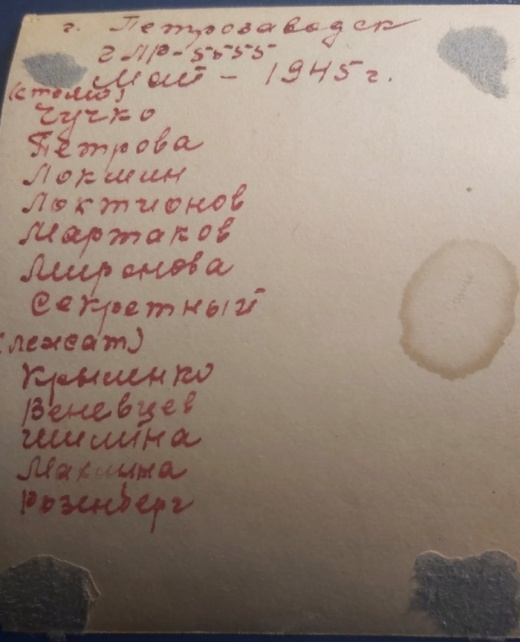 г. Петрозаводск
ГЛР-5555
Май - 1945 г.
(стоят)
Чучко
Петрова
Локшин
Локтионов
Мартаков
Миронова
Секретный
(лежат)
Крыленко
Веневцев
Шилина
Махлина
Розенберг